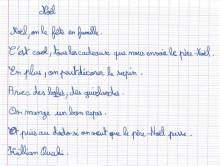 Noël
Noël, on le fête en famille.
C'est cool, tous les cadeaux que nous envoie le père-Noël.
En plus, on peut décorer le sapin.
Avec des boules, des guirlandes.
On mange un bon repas.
Et puis au dodo si on veut que le père-Noël passe.
Killian